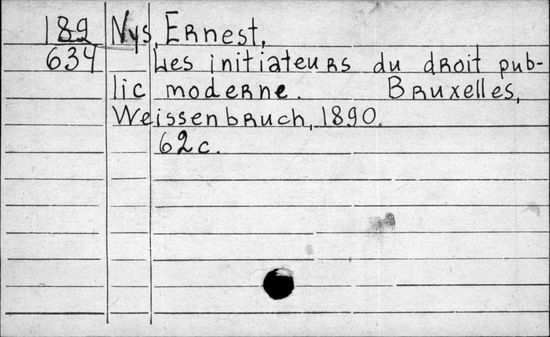 189 Nys, Ernest,
634 Les initiateurs du droit pub-
lic moderne. Bruxelles,
Weissenbruch, 1890.
62 c.